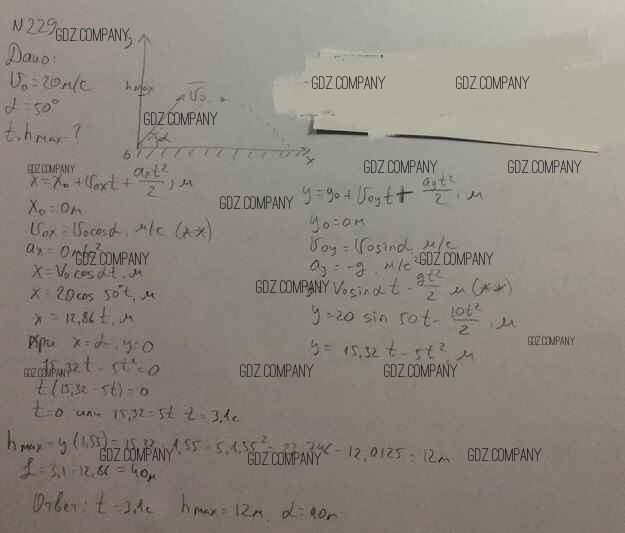 N229
Дано:
V₀ = 20 м/с
α = 50°
t, hmax?
y
hmax
V₀
α
0
x
GDZ.COMPANY
GDZ.COMPANY
GDZ.COMPANY
GDZ.COMPANY
GDZ.COMPANY
GDZ.COMPANY
GDZ.COMPANY
GDZ.COMPANY
x = x₀ + V₀ₓt + aₓt²/2, м
x₀ = 0 м
V₀ₓ = V₀cosα, м/с (**)
aₓ = 0 м/с²
x = V₀ cosαt, м
x = 20 cos 50°t, м
x = 12,86 t, м
При x = L, y = 0
15,32t - 5t² = 0
t(15,32 - 5t) = 0
t = 0 или 15,32 = 5t t = 3,1с
y = y₀ + V₀yt + ayt²/2, м
y₀ = 0 м
V₀y = V₀sinα, м/с
ay = -g, м/с²
V₀sinα t - gt²/2 м (**)
y = 20 sin 50t - 10t²/2, м
y = 15,32t - 5t², м
GDZ.COMPANY
GDZ.COMPANY
GDZ.COMPANY
GDZ.COMPANY
GDZ.COMPANY
GDZ.COMPANY
GDZ.COMPANY
hmax = y(1,55) = 15,32 · 1,55 - 5 · 1,55² = 23,746 - 12,0125 = 12м
L = 3,1 · 12,86 = 40м
GDZ.COMPANY
GDZ.COMPANY
GDZ.COMPANY
Ответ: t = 3,1с hmax = 12м, L = 40м